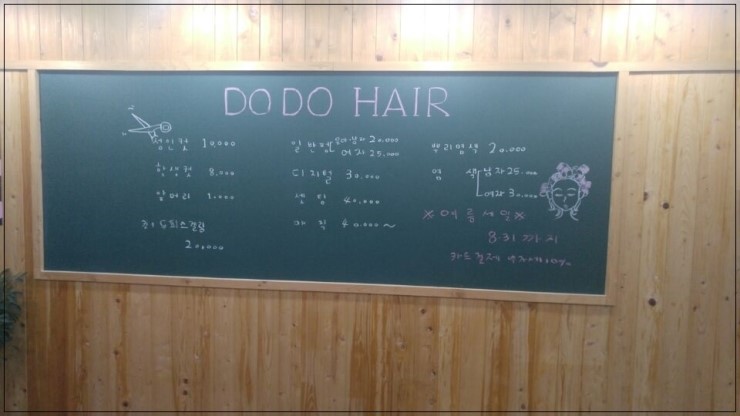 DODO HAIR
성인컷 10,000
학생컷 8,000
앞머리 1,000
20,000
일반펌 남자 20.000
여자 25.000
디지털 30.000
셋팅 40.000
매직 40.000~
뿌리염색 20.000
염색 남자 25.000
여자 30.000
※여름세일※
8.31 까지
카드결제